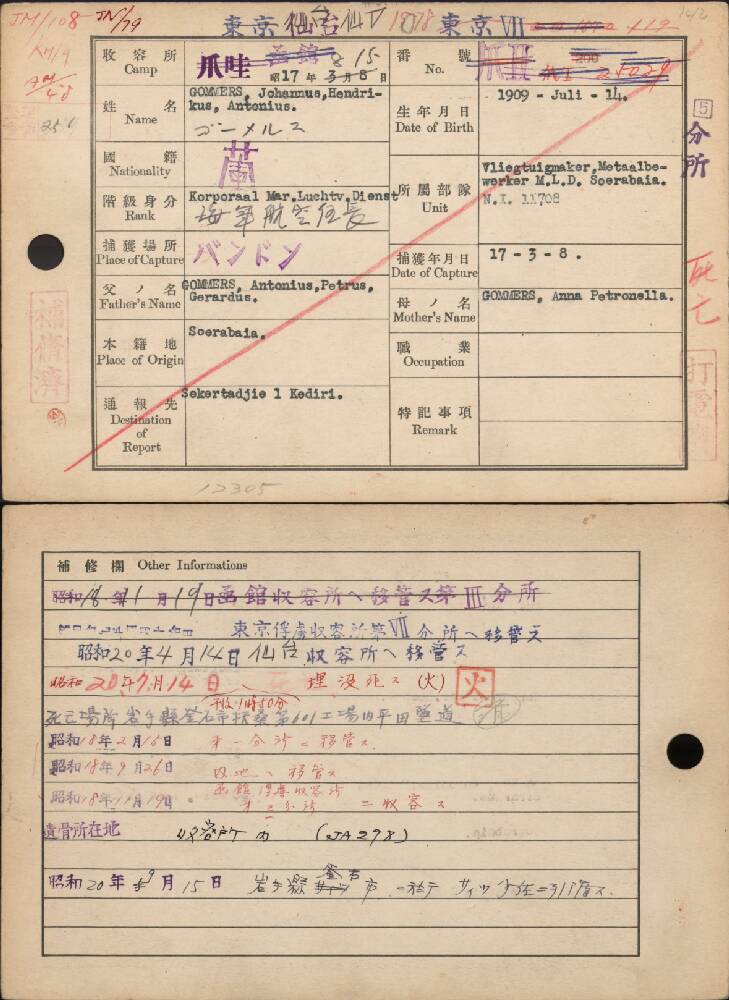 JM/108
JN/79
東京 仙台 仙V 1878 東京VII 419
142
KM/9
AM/48
251
収容所 Camp
爪哇 函館 8 15
昭17年3月8日
番號 No.
爪II 200
25029
姓名 Name
GOMMERS, Johannus,Hendri-
kus, Antonius.
ゴーメルス
生年月日 Date of Birth
1909 - Juli - 14.
5
分所
國籍 Nationality
蘭
階級身分 Rank
Korporaal Mar.Luchtv.Dienst
海軍航空伍長
所属部隊 Unit
Vliegtuigmaker,Metaalbe-
werker M.L.D. Soerabaia.
N.I. 11708
捕獲場所 Place of Capture
バンドン
捕獲年月日 Date of Capture
17 - 3 - 8 .
死亡
父ノ名 Father's Name
GOMMERS, Antonius,Petrus,
Gerardus.
母ノ名 Mother's Name
GOMMERS, Anna Petronella.
補修濟
本籍地 Place of Origin
Soerabaia.
職業 Occupation
打電
通報先 Destination of Report
Sekertadjie 1 Kediri.
特記事項 Remark
12305
補修欄 Other Informations
昭和18年11月19日函館収容所へ移管ス第III分所
東京俘虜収容所第VII分所へ移管ス
昭和20年4月14日仙台収容所へ移管ス
昭和20年7月14日 埋没死ス(火) 火
死亡場所岩手縣釜石市扶桑第601工場旧平田隧道
昭和18年2月15日 第一分所ニ移管ス
昭和18年9月26日 内地へ移管ス
函館俘虜収容所
昭和18年11月19日 第三分所ニ収容ス
遺骨所在地 収容所内 (JA298)
昭和20年9月15日 岩手縣釜石市ニ於テ サイツ少佐ニ引管ス